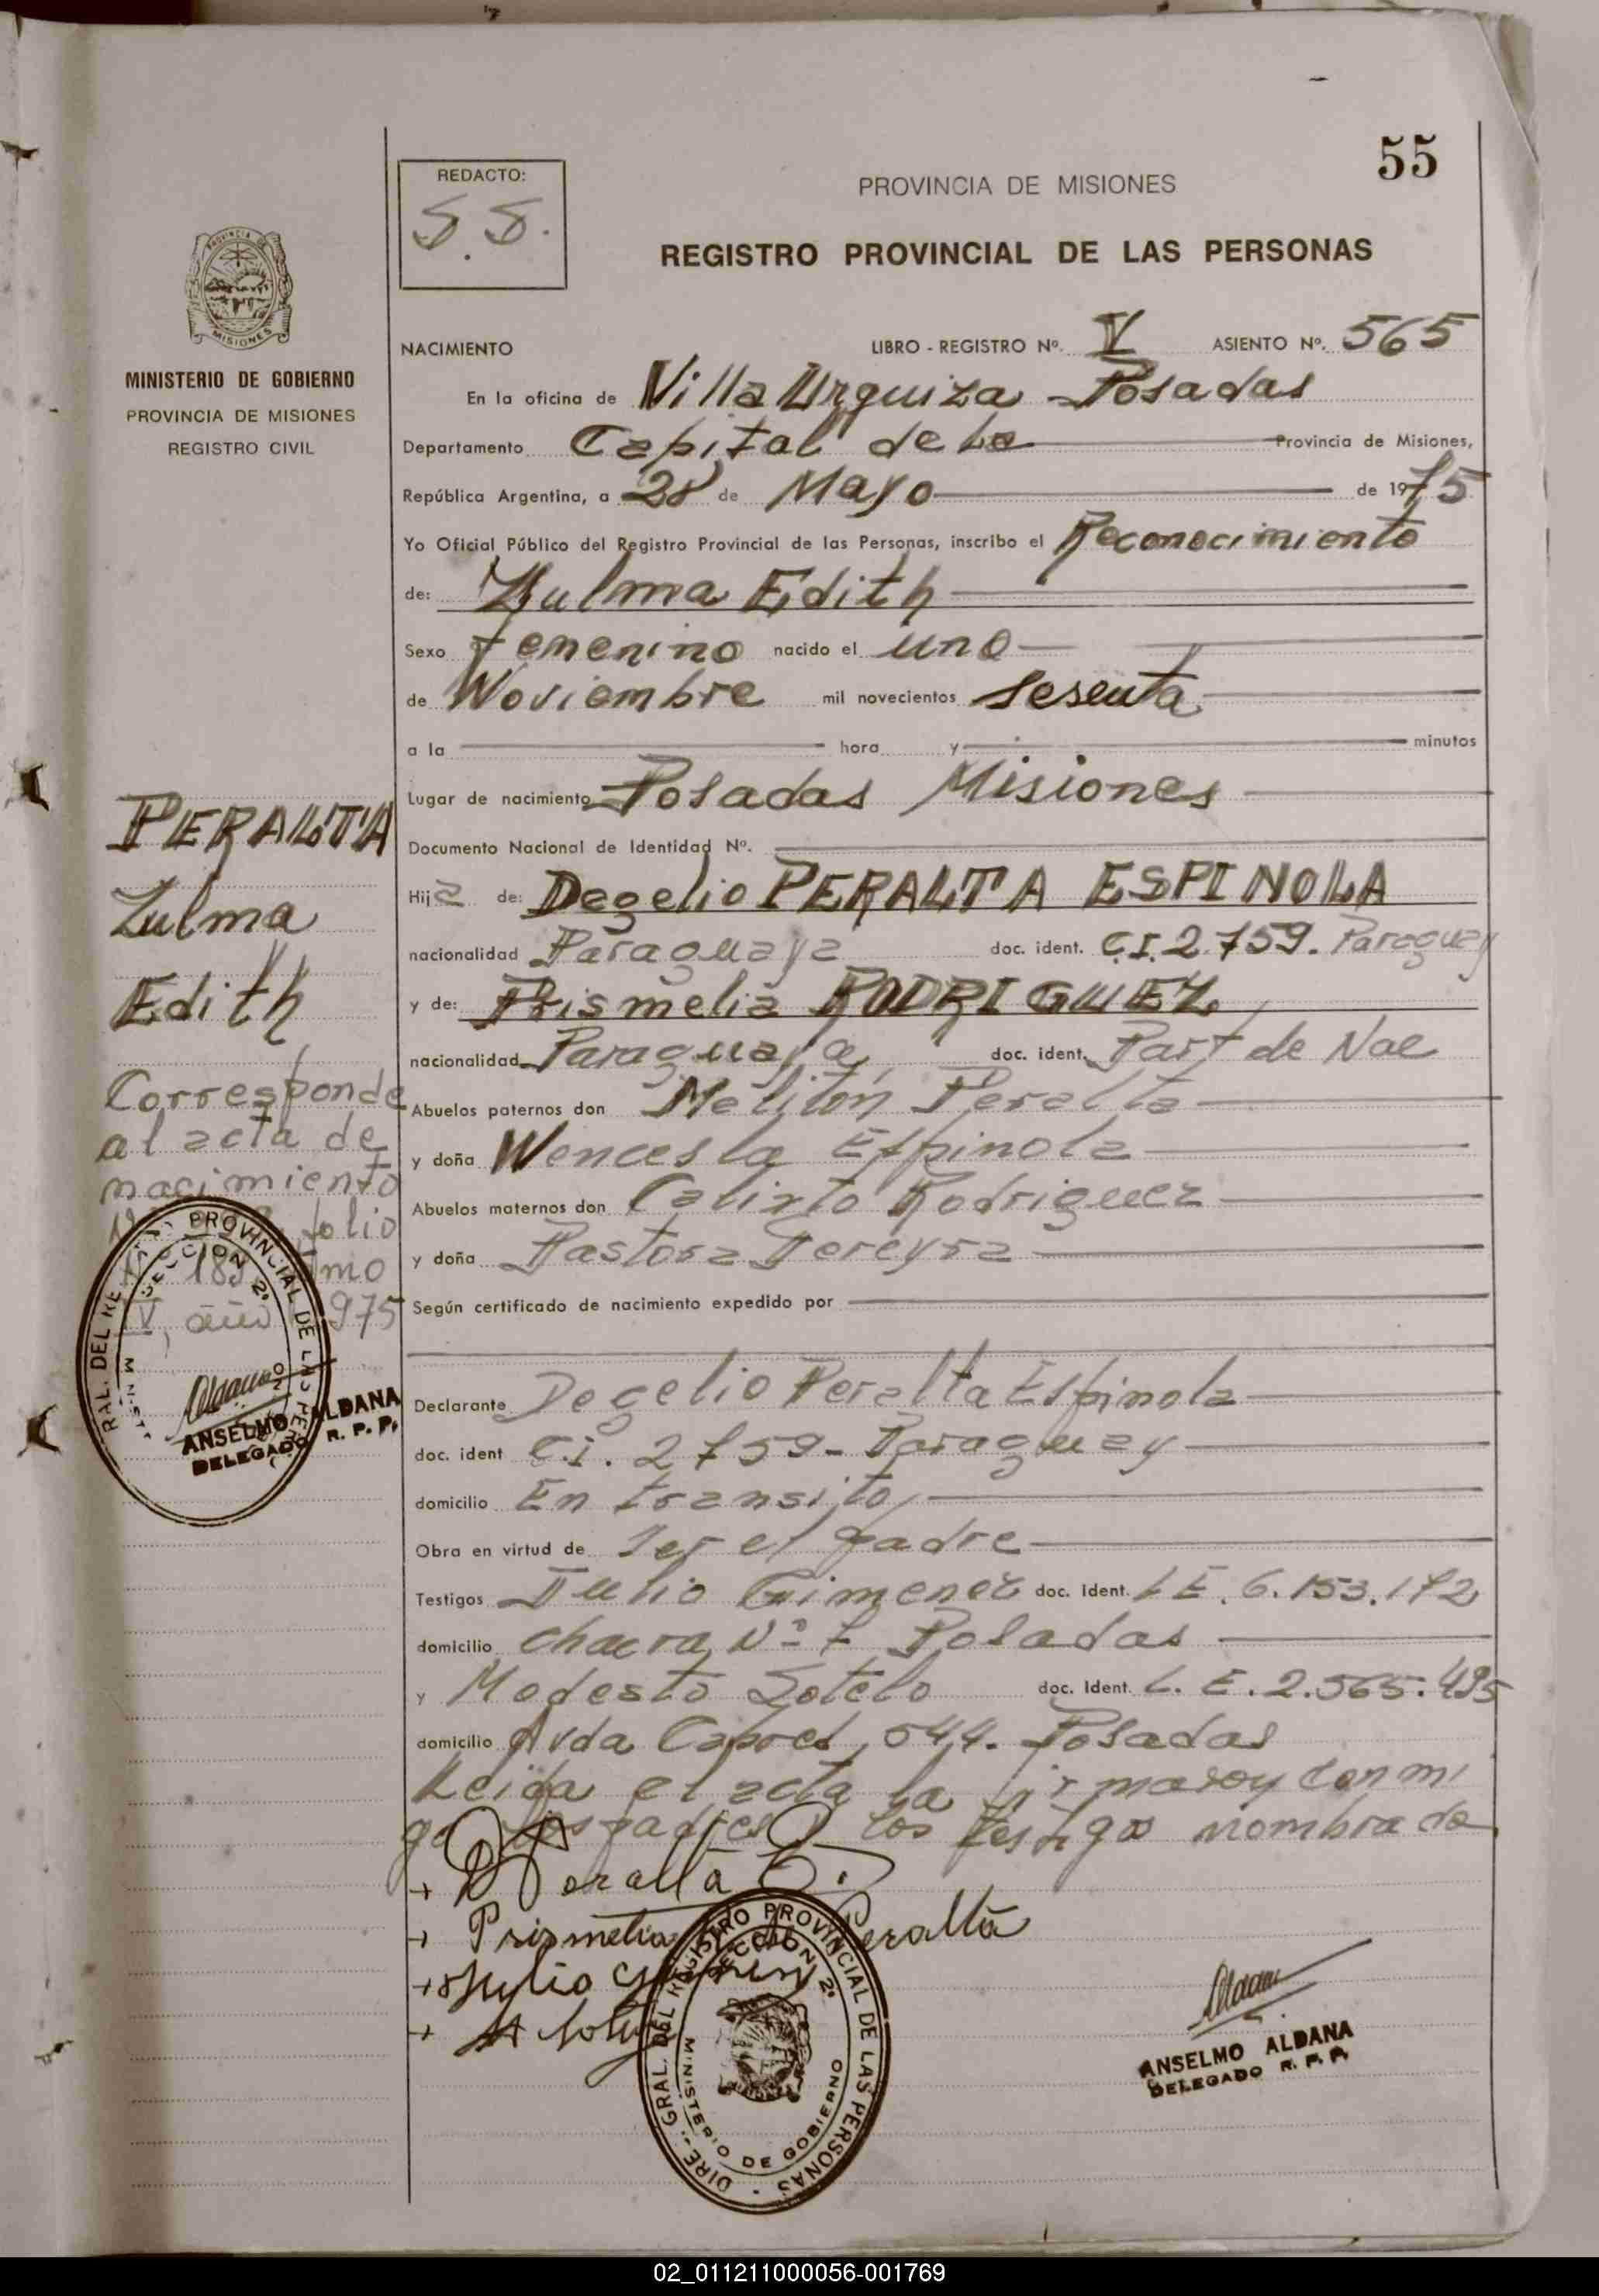 55
REDACTO:
S.S.
PROVINCIA DE MISIONES
REGISTRO PROVINCIAL DE LAS PERSONAS
PROVINCIA DE
MISIONES
MINISTERIO DE GOBIERNO
PROVINCIA DE MISIONES
REGISTRO CIVIL
NACIMIENTO LIBRO - REGISTRO Nº. V ASIENTO Nº. 565
En la oficina de Villa Urquiza - Posadas
Departamento Capital de la Provincia de Misiones,
República Argentina, a 28 de Mayo de 1975
Yo Oficial Público del Registro Provincial de las Personas, inscribo el Reconocimiento
de: Zulma Edith
Sexo femenino nacido el uno
de Noviembre mil novecientos sesenta
a la hora y minutos
Lugar de nacimiento Posadas Misiones
Documento Nacional de Identidad Nº.
Hija de: Degelio PERALTA ESPINOLA
nacionalidad Paraguaya doc. ident. C.I. 2.759. Paraguay
y de: Prismelia RODRIGUEZ
nacionalidad Paraguaya doc. ident. Part de Nac
Abuelos paternos don Melitón Peralta
y doña Wencesla Espinola
Abuelos maternos don Calixto Rodriguez
y doña Pastora Pereyra
Según certificado de nacimiento expedido por
Declarante Degelio Peralta Espinola
doc. ident C.I. 2759- Paraguay
domicilio En transito
Obra en virtud de ser el padre
Testigos Julio Gimenez doc. Ident. L.E. 6.153.172
domicilio chacra Nº 7 Posadas
y Modesto Sotelo doc. Ident. L.E. 2.565.495
domicilio Avda Cabred 544. Posadas
Leida el acta la firmaron conmi
go los padres y los testigos nombrado
+ D Peralta E.
+ Prismelia de Peralta
+ Julio Gimenez
+ M Sotelo
PERALTA
Zulma
Edith
Corresponde
al acta de
nacimiento
folio
183 tomo
IV, año 1975
RAL. DEL RE PROVINCIAL DE LAS PER
SECCION 2º
ANSELMO ALDANA
DELEGADO R. P. P.
DIRE. GRAL. DEL REGISTRO PROVINCIAL DE LAS PERSONAS
SECCION 2º
MINISTERIO DE GOBIERNO
ANSELMO ALDANA
DELEGADO R. P. P.
02_011211000056-001769